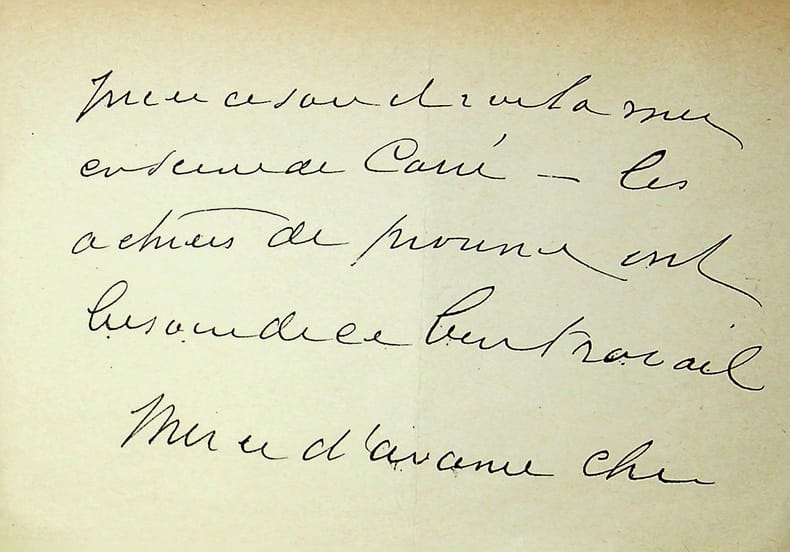 son droit à la mise
en scène de Carré — les
acteurs de province ont
besoin de ce bon travail
Merci d'avance cher